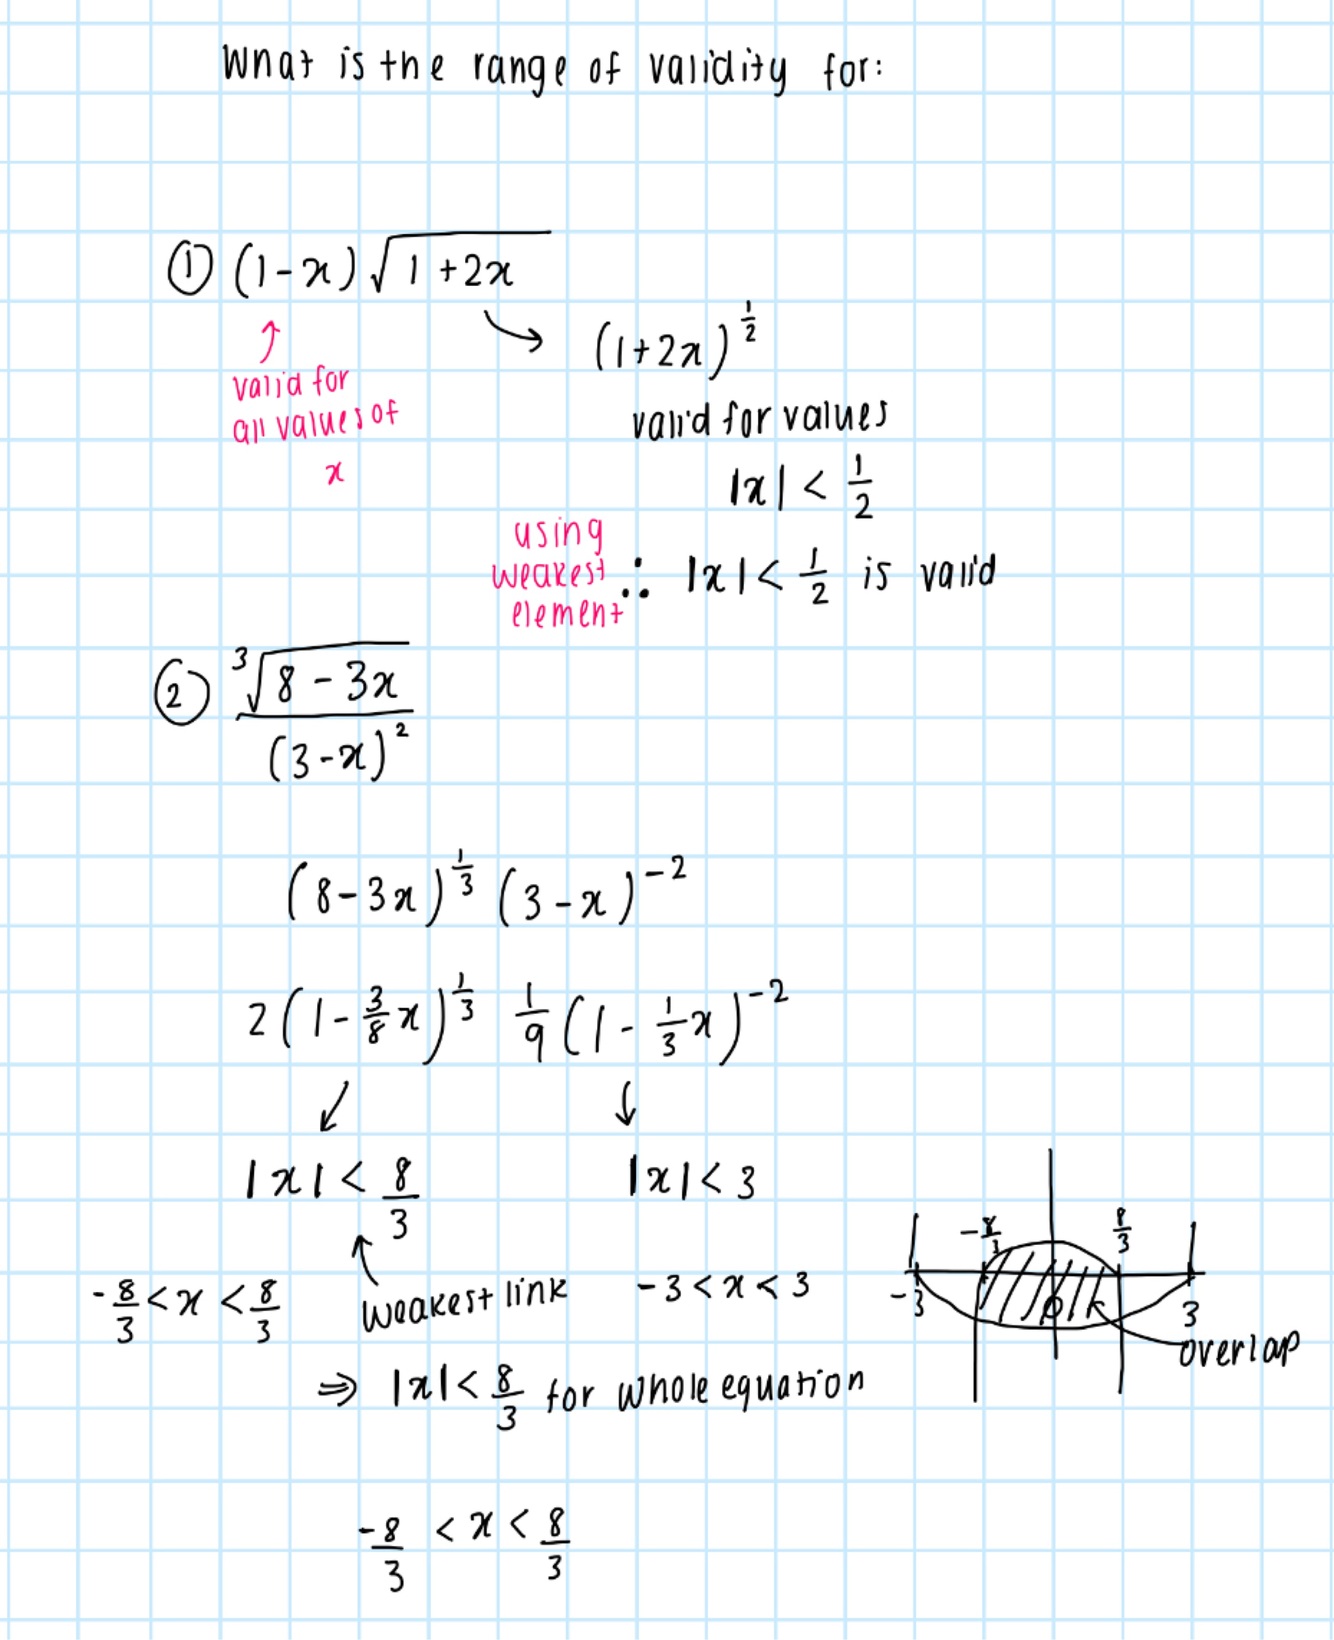 What is the range of validity for:
① (1-x)√(1+2x)
(1+2x)^(1/2)
valid for
all values of
x
valid for values
|x| < 1/2
using
weakest
element
∴ |x| < 1/2 is valid
② ³√(8-3x) / (3-x)²
(8-3x)^(1/3) (3-x)^(-2)
2(1-3/8x)^(1/3) 1/9(1-1/3x)^(-2)
|x| < 8/3 |x| < 3
-8/3 < x < 8/3
weakest link
-3 < x < 3
-8/3 8/3
-3 0 3
overlap
⇒ |x| < 8/3 for whole equation
-8/3 < x < 8/3